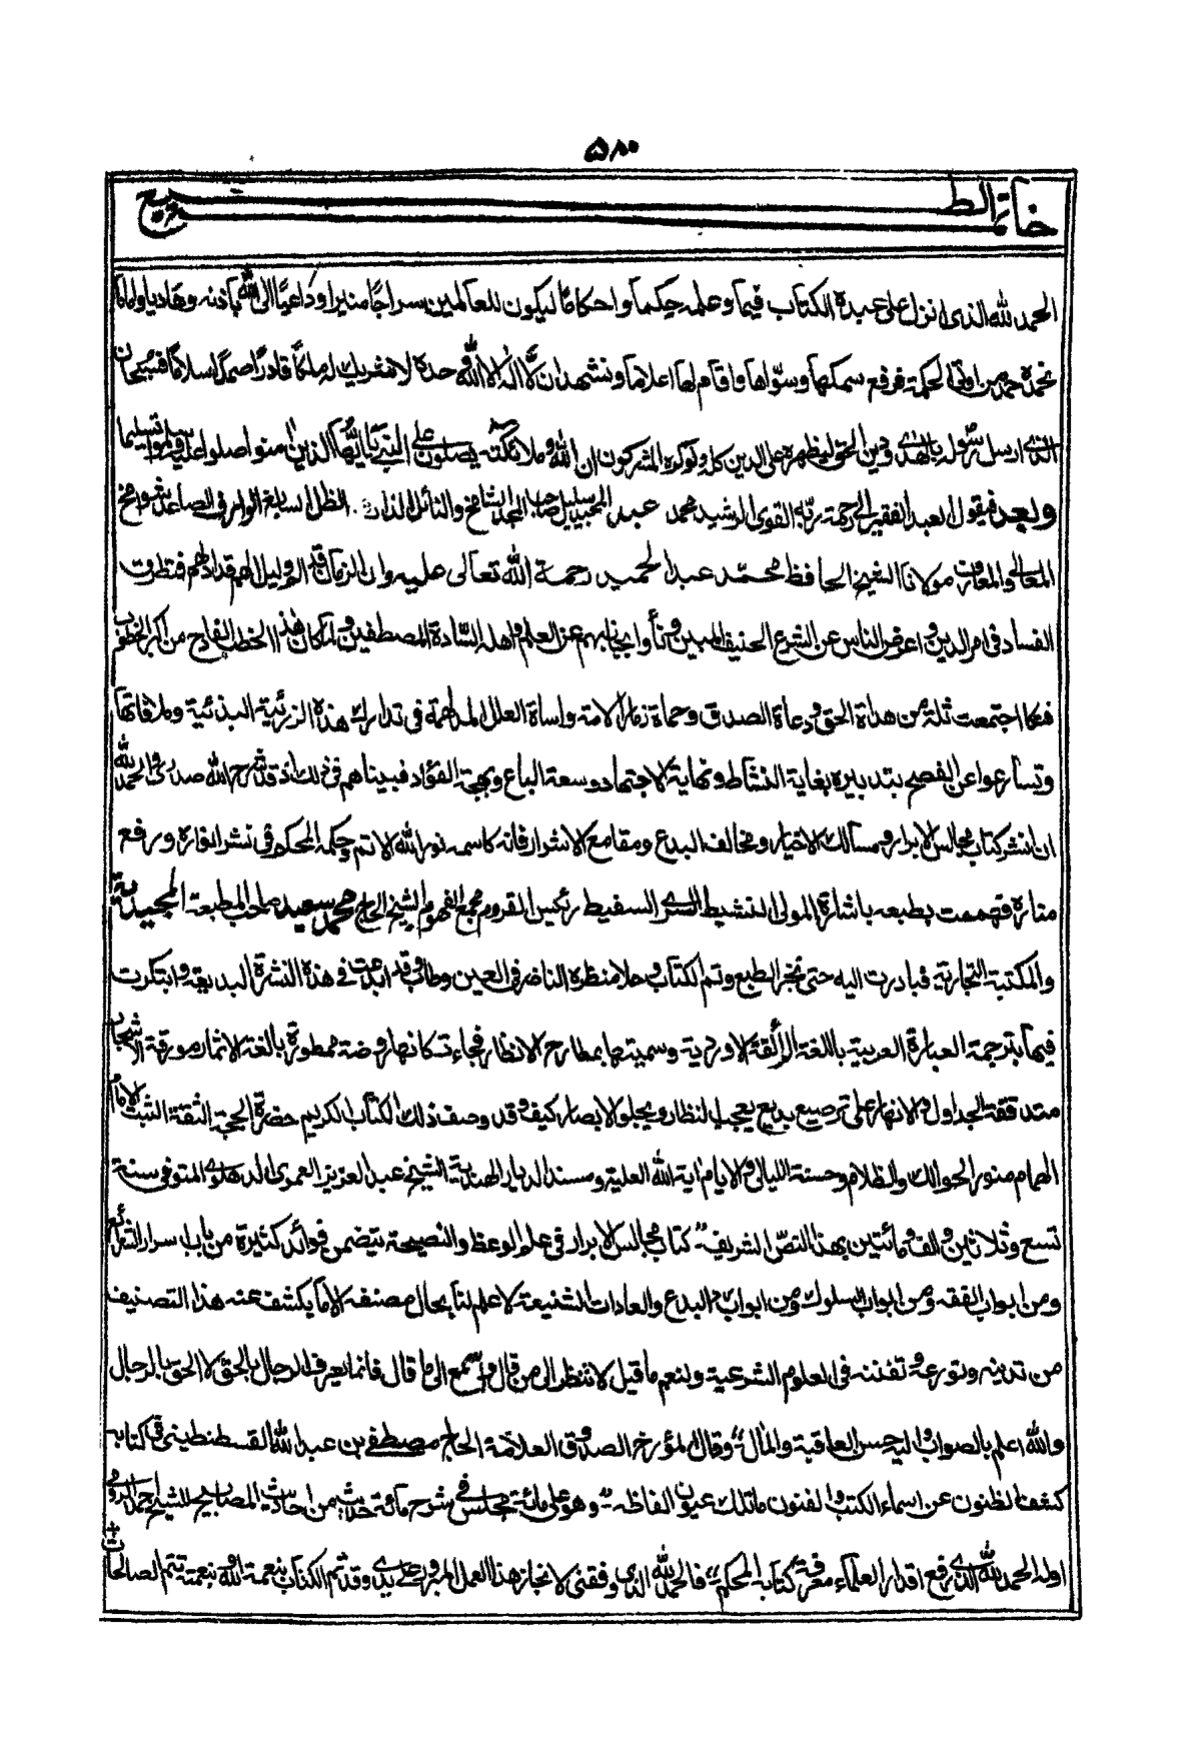 ۵۸۰
خاتمة الطبع
الحمد لله الذى انزل على عبدة الكتاب قيماً وعلمه حِكماً و احكاماً ليكون للعالمين سراجًا منيرا وداعيًا الى الله بأذنه وهاديا واماما
نحمدة حمد من اوتى الحكمة فرفع سمكها وسوّاها واقام لها اعلاماً ونشهد ان لّا اله الا الله وحدة لا شريك له ملكاً قادرًا صمدًا سلاماً فسُبحان
الذى ارسل رسُوله بالهدٰى ودين الحق ليظهرة على الدين كله ولوكرة المشركون ان الله وملائكته يصلون على النبى يايُّها الذين اٰمنوا صلوا عليه وسلموا تسليما
وبعد فيقول العبد الفقير الى رحمة ربّه القوى الرشيد محمد عبد المجيد سليل صاحب المجد الشامخ والنائل الظل السابغ الوارف الصاعد شوامخ
المعالى والمعارف مولانا الشيخ الحافظ محمّد عبد الحميد رحمة الله تعالى عليه وان الزمان قد ادلهم فتظرق
الفساد فى امر الدين و اعرض الناس عن الشرع الحنيف المبين و نأوا بجانبهم عن العلم و اهله السّادة المصطفين ولما كان هٰذا الخطب الفادح من اكبر الخطوب
فهكذا اجتمعت ثلة من هداة الحق و دعاة الصدق وحماة ذمار الامة واساة العلل المدلهمة فى تدارك هذة الرزئية البذئية وملافاتها
وتسارعوا عن الفصح بتدبيرة بغاية النشاط ونهاية الاجتهاد وسعة الباع وبهجة الفؤاد فبينا هم فى ذلك اذ قد شرح الله صدرى والحمد لله
ان انشر كتاب مجالس الابرار ومسالك الاخيار ومخالف البدع ومقامع الاشرار فانه كاسمه نور الله لا تم وحكمه المحكم فى نشر انوارة و رفع
منارة فهممت بطبعه باشارة المولى النشيط السرى السفيط رئيس القروم مجمع الفهوم الشيخ الحاج محمد سعيد صاحب المطبعة المجيدية
والمكتبة التجارية فبادرت اليه حتى نجز الطبع وتم الكتاب و حلا منظره الناضر فى العين وطاب وقد ابدعت فى هذة النشرة البديعة وابتكرت
فيها بترجمة العبارة العربية باللغة الرائقة الاوردية وسميتها بمطارح الانظار فجاءت كانها روضة ممطورة بالغة الاثمار مورقة الاشجار
متدفقة الجداول والانهار على ترصيع بديع يعجب النظار ويجلو الابصار كيف و قد وصف ذلك الكتاب الكريم حضرة الحجة الثقة الثبت الامام
الهمام منور الحوالك والظلام وحسنة الليالى والايام اية الله العلية ومسند الديار الهندية الشيخ عبد العزيز العمرى الدهلوى المتوفى سنة
تسع وثلاثين و الف ومائتين بهذا النصّ الشريف "كتاب مجالس الابرار فى علم الوعظ والنصيحة يتضمن فوائد كثيرة من باب اسرار الشرائع
ومن ابواب الفقه ومن ابواب السلوك ومن ابواب رد البدع والعادات الشنيعة لا علم لنا بحال مصنفه الا ما يكشف عنه هذا التصنيف
من تدينه وتورعه و تفننه فى العلوم الشرعية ولنعم ما قيل لا تنظر الى من قال واسمع الى ما قال فانما يعرف الرجال بالحق لا الحق بالرجال
والله اعلم بالصواب واليه حسن العاقبة والمال" وقال المؤرخ الصدوق العلامة الحاج مصطفے بن عبد الله القسطنطينى فى كتابه
كشف الظنون عن اسماء الكتب والفنون ما تلك عيون الفاظه "وهو على مائة مجلس فى شرح مائة حديث من احاديث المصابيح للشيخ احمد الرومى
اوله الحمد لله الذى رفع اقدار العلماء معرفة كتابه المحكم" فالحمد لله الذى وفقنى لانجاز هذا العمل المبرور على يدى وقد تم الكتاب بنعمة الله و بنعمته تتم الصالحات